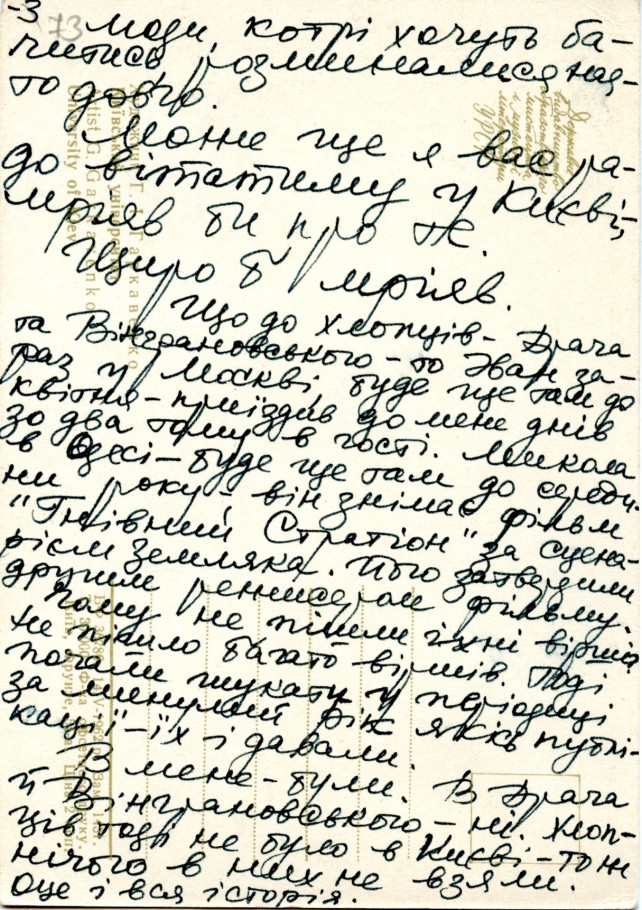 -3
73
люди, котрі хочуть ба-
читись, розминалися на-
то довго.
Може ще я вас ра-
до вітатиму у Києві,
мріяв би про те.
Щиро б мріяв.
Що до хлопців - Драча
та Вінграновського - то Іван за-
раз у Москві буде ще там до
квітня - приїздив до мене днів
зо два тому в гості. Микола
в Одесі - буде ще там до середи-
ни року, - він знімає фільм
"Гнівний Стратіон" за сцена-
рієм Земляка. Його затвердили
другим режисером фільму.
Чому не пішли їхні вірші?
Не пішло багато віршів. Тоді
почали шукати у періодиці
за минулий рік якісь публі-
кації - їх і давали.
В мене - були. В Драча
й Вінграновського - ні. Хлоп-
ців тоді не було в Києві - то ж
нічого в них не взяли.
Оце і вся історія.
University of Kiev